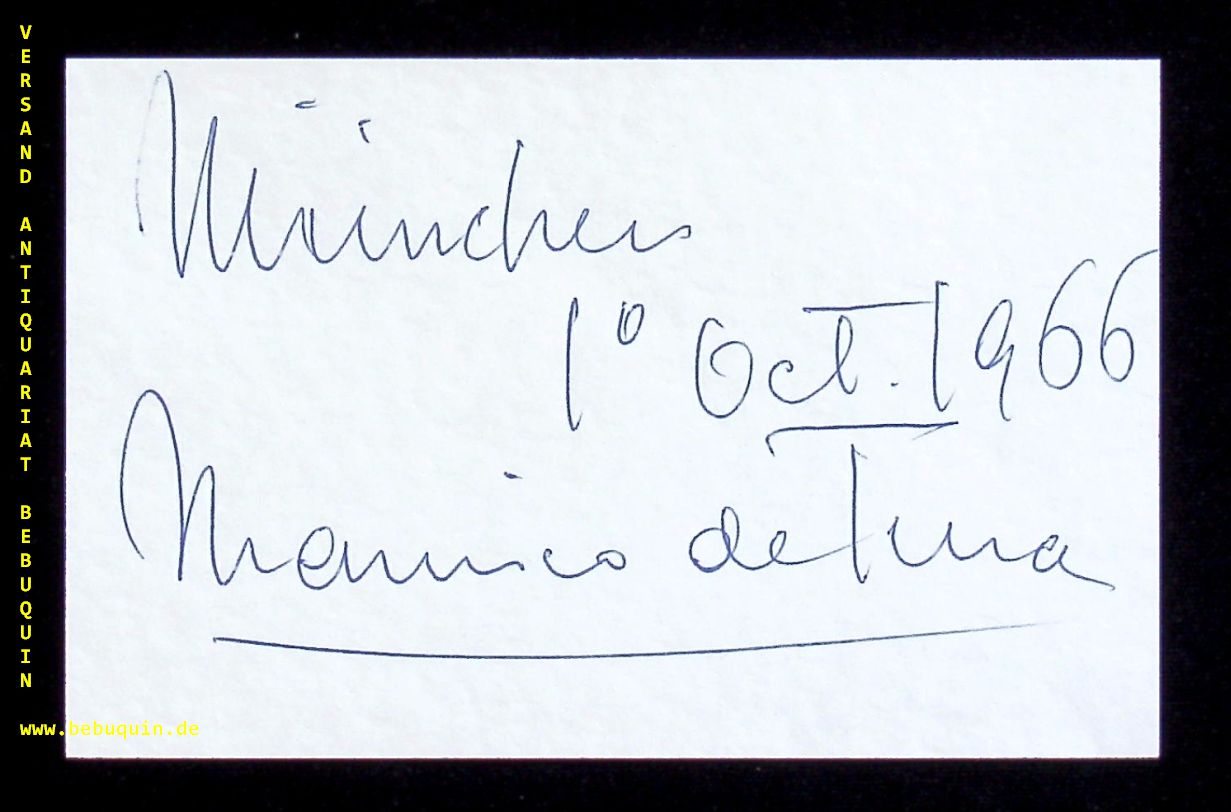 VERSAND ANTIQUARIAT BEBUQUIN
München
1º Oct. 1966
de
www.bebuquin.de